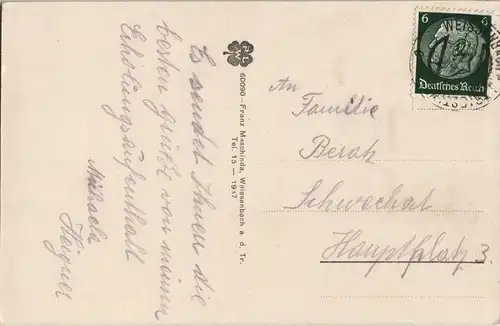 Es sendet Ihnen die
besten Grüße von meinem
Erholungsaufenthalt
Michaela
60090 – Franz Maschinda, Weissenbach a. d. Tr.
Tel. 15 — 1937
An
Familie
Berak
Schwechat
Hauptplatz 3.
6 6
Deutsches Reich
WEISSENBACH